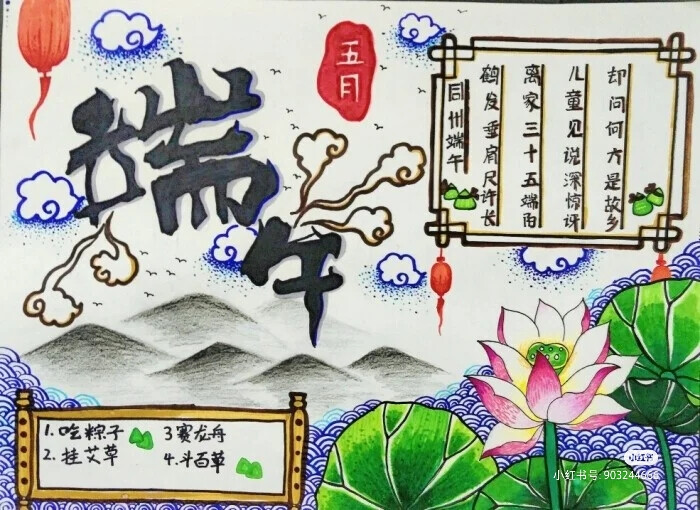 端午
五月
同州端午
鹤发垂肩尺许长
离家三十五端阳
儿童见说深惊讶
却问何方是故乡
1. 吃粽子
2. 挂艾草
3 赛龙舟
4. 斗百草
小红书
小红书号: 903244686